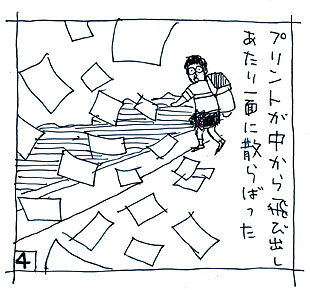 プリントが中から飛び出し
あたり一面に散らばった
4